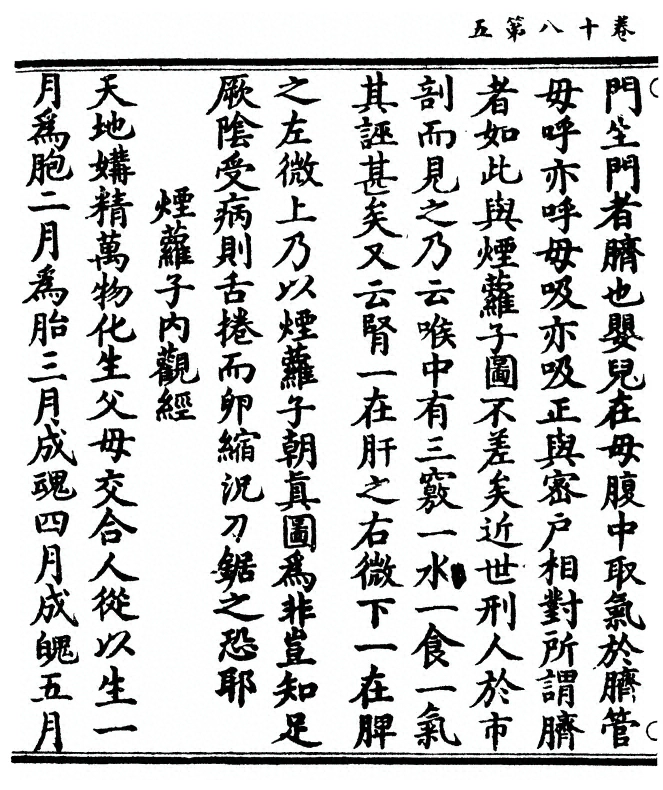 卷十八第五
門生門者臍也嬰兒在母腹中取氣於臍管
母呼亦呼母吸亦吸正與密戶相對所謂臍
者如此與煙蘿子圖不差矣近世刑人於市
剖而見之乃云喉中有三竅一水一食一氣
其誣甚矣又云腎一在肝之右微下一在脾
之左微上乃以煙蘿子朝真圖為非豈知足
厥陰受病則舌捲而卵縮況刀鋸之恐耶
煙蘿子內觀經
天地媾精萬物化生父母交合人從以生一
月為胞二月為胎三月成魂四月成魄五月